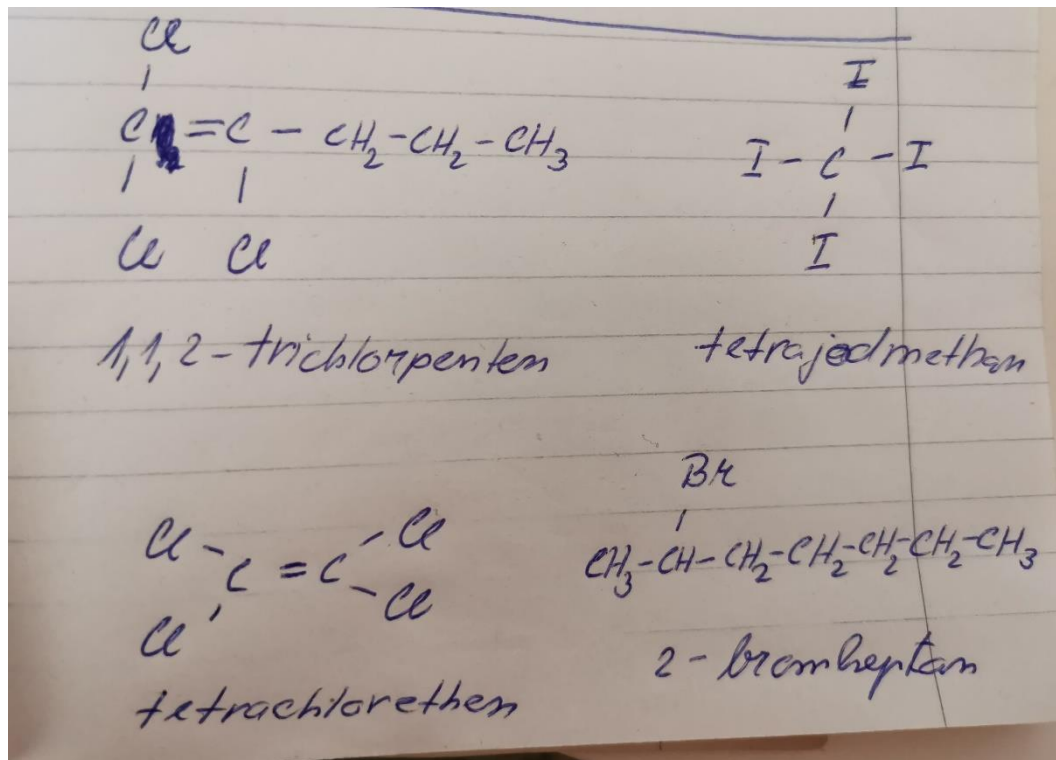 Cl
C=C-CH2-CH2-CH3
Cl Cl
1,1,2-trichlorpenten
I
I-C-I
I
tetrajodmethan
Cl Cl
C=C
Cl Cl
tetrachlorethen
Br
CH3-CH-CH2-CH2-CH2-CH2-CH3
2-bromheptan